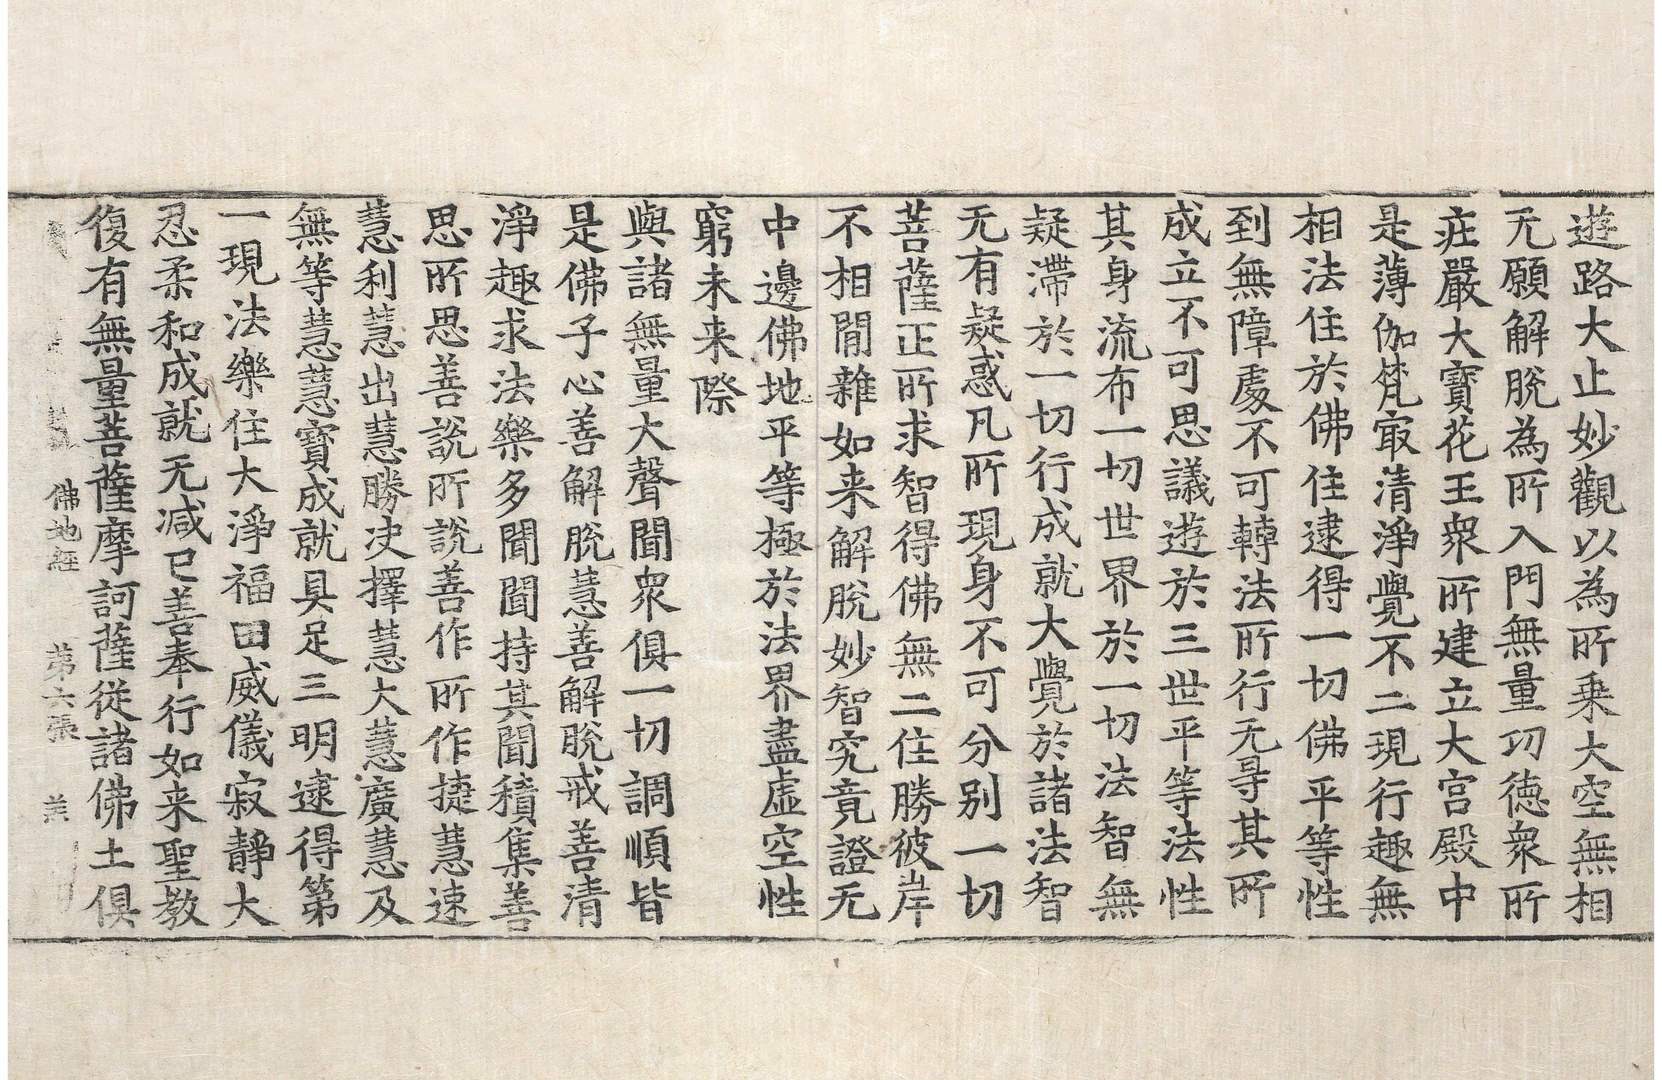 遊路大止妙觀以為所乗大空無相
无願解脫為所入門無量功徳衆所
莊嚴大寶花王衆所建立大宮殿中
是薄伽梵㝡清淨覺不二現行趣無
相法住於佛住逮得一切佛平等性
到無障處不可轉法所行无㝵其所
成立不可思議遊於三世平等法性
其身流布一切世界於一切法智無
疑滯於一切行成就大覺於諸法智
无有疑惑凡所現身不可分別一切
菩薩正所求智得佛無二住勝彼岸
不相閒雜如来解脫妙智究竟證无
中邊佛地平等極於法界盡虛空性
窮未来際
與諸無量大聲聞衆俱一切調順皆
是佛子心善解脫慧善解脫戒善清
淨趣求法樂多聞聞持其聞積集善
思所思善說所說善作所作捷慧速
慧利慧出慧勝决擇慧大慧廣慧及
無等慧慧寶成就具足三明逮得第
一現法樂住大淨福田威儀寂靜大
忍柔和成就无减已善奉行如来聖教
復有無量菩薩摩訶薩從諸佛土俱
佛地經 第六張 羔